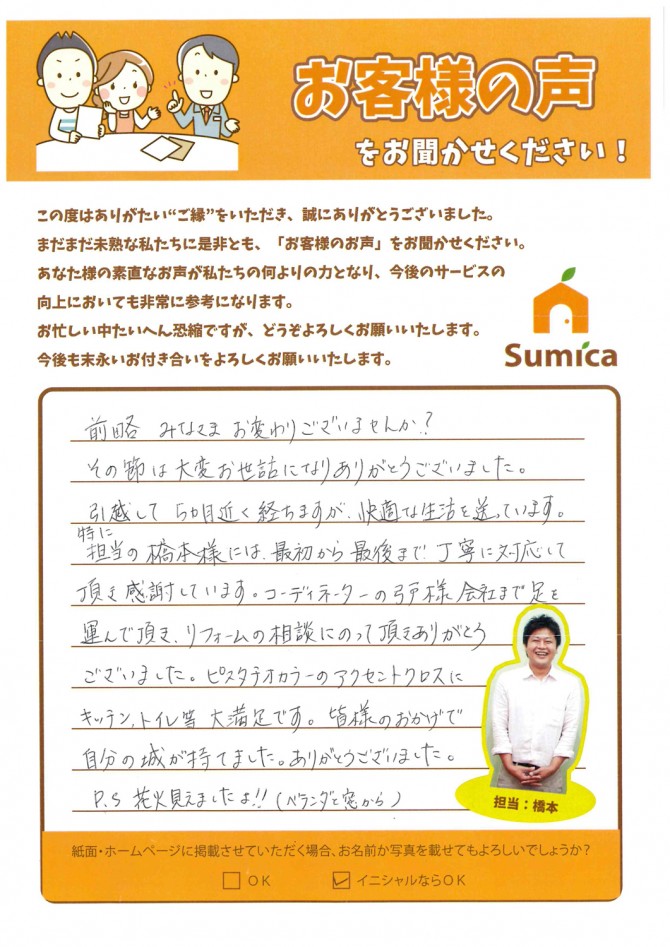 お客様の声
をお聞かせください！
この度はありがたい“ご縁”をいただき、誠にありがとうございました。
まだまだ未熟な私たちに是非とも、「お客様のお声」をお聞かせください。
あなた様の素直なお声が私たちの何よりの力となり、今後のサービスの
向上においても非常に参考になります。
お忙しい中たいへん恐縮ですが、どうぞよろしくお願いいたします。
今後も末永いお付き合いをよろしくお願いいたします。
Sumica
前略 みなさま お変わりございませんか？
その節は大変お世話になりありがとうございました。
引越して 5カ月近く経ちますが、快適な生活を送っています。
特に
担当の橋本様には、最初から最後まで、丁寧に対応して
頂き感謝しています。コーディネーターの弓戸様 会社まで足を
運んで頂き、リフォームの相談にのって頂きありがとう
ございました。ピスタチオカラーのアクセントクロスに
キッチン、トイレ等 大満足です。皆様のおかげで
自分の城が持てました。ありがとうございました。
P.S 花火見えましたよ!!（ベランダと窓から）
担当：橋本
紙面・ホームページに掲載させていただく場合、お名前か写真を載せてもよろしいでしょうか？
OK
イニシャルならOK